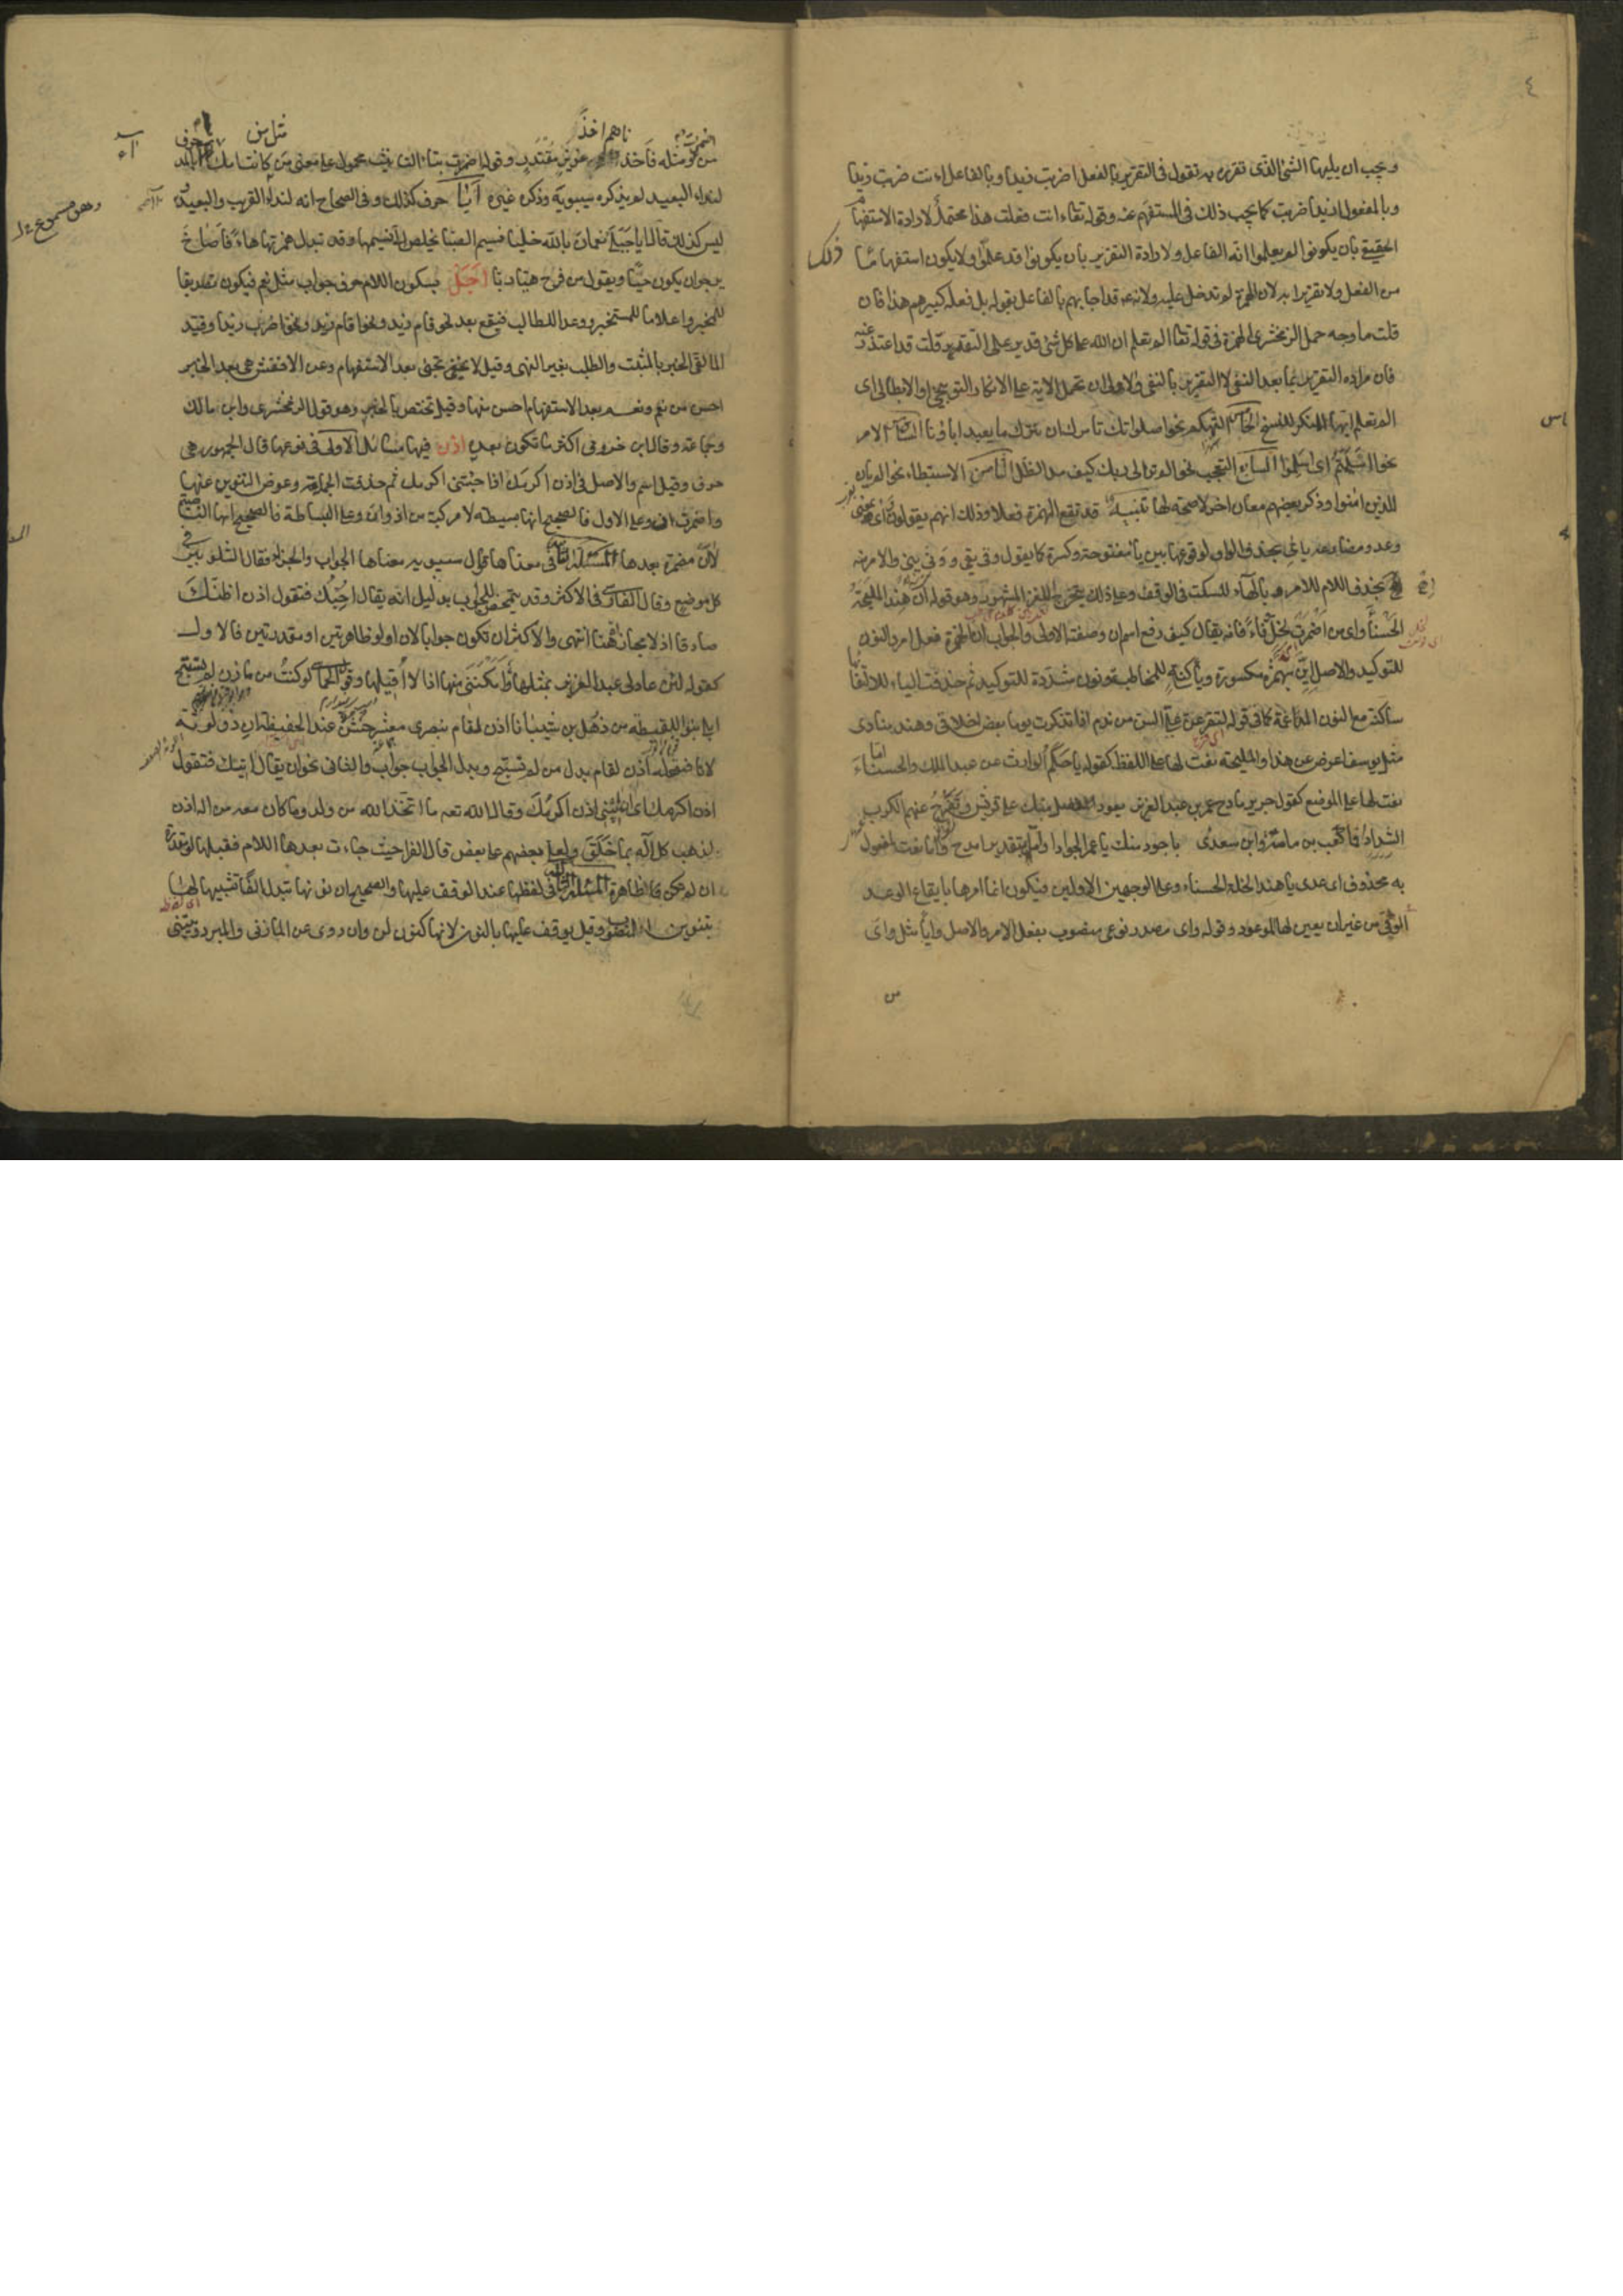 ٤
ويجب ان يليها الشئ الذى تقرره به تقول فى التقرير بالفعل اضربت زيدا وبالفاعل اءنت ضربت زيدا
وبالمفعول ازيدا ضربت كما يجب ذلك فى المستفهم عنه وقوله تعالى اءنت فعلت هذا محتمل لارادة الاستفهام
الحقيقى بان يكونوا لم يعلموا انه الفاعل ولارادة التقرير بان يكونوا قد علموا ولا يكون استفهاما
من الفعل ولا تقريرا به لان الهمزة لم تدخل عليه ولانه قد اجابهم بالفاعل بقوله بل فعله كبيرهم هذا فان
قلت ما وجه حمل الزمخشرى الهمزة فى قوله تعالى الم تعلم ان الله على كل شئ قدير على التقرير قلت قد اعتذر عنه
فان مراده التقرير بما بعد النفى لا التقرير بالنفى والاولى ان تحمل الاية على الانكار التوبيخى او الابطالى اى
الم تعلم ايها المنكر للنسخ الخامس التهكم نحو اصلواتك تأمرك ان نترك ما يعبد اباؤنا السادس الامر
نحو ااسلمتم اى اسلموا السابع التعجب نحو الم تر الى ربك كيف مد الظل الثامن الاستبطاء نحو الم يأن
للذين امنوا وذكر بعضهم معان اخر لا صحة لها تنبيه قد تقع الهمزة فعلا وذلك انهم يقولون وأى بمعنى
وعد ومضارعه يائى بحذف الواو لوقوعها بين ياء مفتوحة وكسرة كما يقول وقى يقى وونى ينى والامر منه
اه بحذف اللام للامر وبالهاء للسكت فى الوقف وعلى ذلك يتخرج اللغز المشهور وهو قوله ان هند المليحة
الحسناء واى من اضمرت لخل وفاء فانه يقال كيف رفع اسم ان وصفته الاولى والجواب ان الهمزة فعل امر والنون
للتوكيد والاصل اين بهمزة مكسورة وياء ساكنة للمخاطبة ونون مشددة للتوكيد ثم حذفت الياء لالتقائها
ساكنة مع النون المدغمة كما فى قوله لتقرعن على السن من ندم اذا تذكرت يوما بعض اخلاقى وهند منادى
مثل يوسف اعرض عن هذا والمليحة نعت لها على اللفظ كقوله يا حكم الوارث عن عبد الملك والحسناء اما
نعت لها على الموضع كقول جرير مادح عمر بن عبد العزيز يعود الفضل منك على قريش وتفرج عنهم الكرب
الشداد فما كعب بن مامة وابن سعدى باجود منك يا عمر الجوادا واما بتقدير امدح واما نعت لمفعول
به محذوف اى عدى يا هند الخلة الحسناء وعلى الوجهين الاولين فيكون انما امرها بايقاع الوعد
الوفى من غير ان يعين لها الموعود وقوله واى مصدر نوعى منصوب بفعل الامر والاصل وايا مثل واى
من ومثله فاخذناهم اخذ عزيز مقتدر وقوله اضمرت بتاء التانيث محمول على معنى من مثل من كانت امك آ بالمد حرف
لنداء البعيد لم يذكره سيبويه وذكره غيره ايا حرف كذلك وفى الصحاح انه لنداء القريب والبعيد
ليس كذلك قال ايا جبلى نعمان بالله خليا نسيم الصبا يخلص الى نسيمها وقد تبدل همزتها هاء فاصاخ
يرجو ان يكون حيا ويقول من فرح هيا ربا اجل بسكون اللام حرف جواب مثل نعم فيكون تصديقا
للمخبر واعلاما للمستخبر ووعدا للطالب فيقع بعد نحو قام زيد ونحو اقام زيد ونحو اضرب زيدا وقيد
المالقى الخبر بالمثبت والطلب بغير النهى وقيل لا تجئ بعد الاستفهام وعن الاخفش هى بعد الخبر
احسن من نعم ونعم بعد الاستفهام احسن منها وقيل تختص بالخبر وهو قول الزمخشرى وابن مالك
وجماعة وقال ابن خروف اكثر ما تكون بعده اذن فيها مسائل الاولى فى نوعها قال الجمهور هى
حرف وقيل اسم والاصل فى اذن اكرمك اذا جئتنى اكرمك ثم حذفت الجملة وعوض التنوين عنها
واضمرت ان وعلى الاول فالصحيح انها بسيطة لا مركبة من اذ وان وعلى البساطة فالصحيح انها الناصبة
لا ان مضمرة بعدها المسئلة الثانية فى معناها قال سيبويه معناها الجواب والجزاء فقال الشلوبين فى
كل موضع وقال الفارسى فى الاكثر وقد تتمحض للجواب بدليل انه يقال احبك فتقول اذن اظنك
صادقا اذ لا مجازاة هنا انتهى والاكثر ان تكون جوابا لان او لو ظاهرتين او مقدرتين فالاول
كقوله لئن عاد لى عبد العزيز بمثلها وامكننى منها اذا لا اقيلها وقول الحماسى لو كنت من مازن لم تستبح
ابلى بنو اللقيطة من ذهل بن شيبانا اذن لقام بنصرى معشر خشن عند الحفيظة ان ذو لوثة
لانا فقوله اذن لقام بدل من لم تستبح وبدل الجواب جواب والثانى نحو ان يقال اتيك فتقول
اذن اكرمك اى ان اتيتنى اذن اكرمك وقال الله تعالى ما اتخذ الله من ولد وما كان معه من اله اذن
لذهب كل اله بما خلق ولعلا بعضهم على بعض قال الفراء حيث جاءت بعدها اللام فقبلها لو مقدرة
ان لم تكن ظاهرة المسئلة الثالثة فى لفظها عند الوقف عليها والصحيح ان نونها تبدل الفا تشبيها لها
بتنوين المنصوب وقيل يوقف عليها بالنون لانها كنون لن وان روى عن المازنى والمبرد وينبنى